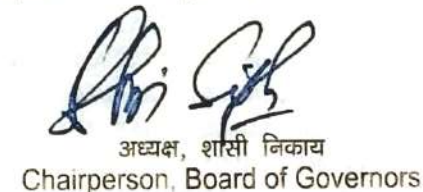 अध्यक्ष, शासी निकाय
Chairperson, Board of Governors